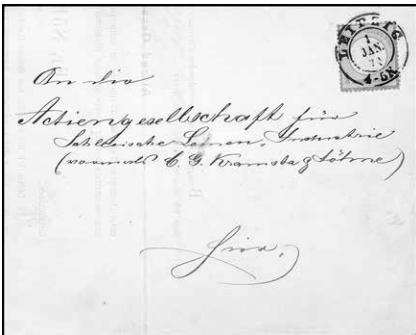 LEIPZIG
1
JAN.
72
4-5N
An die
Actiengesellschaft für
Schlesische Leinen-Industrie
(vormals C. G. Kramsta & Söhne)
hier.